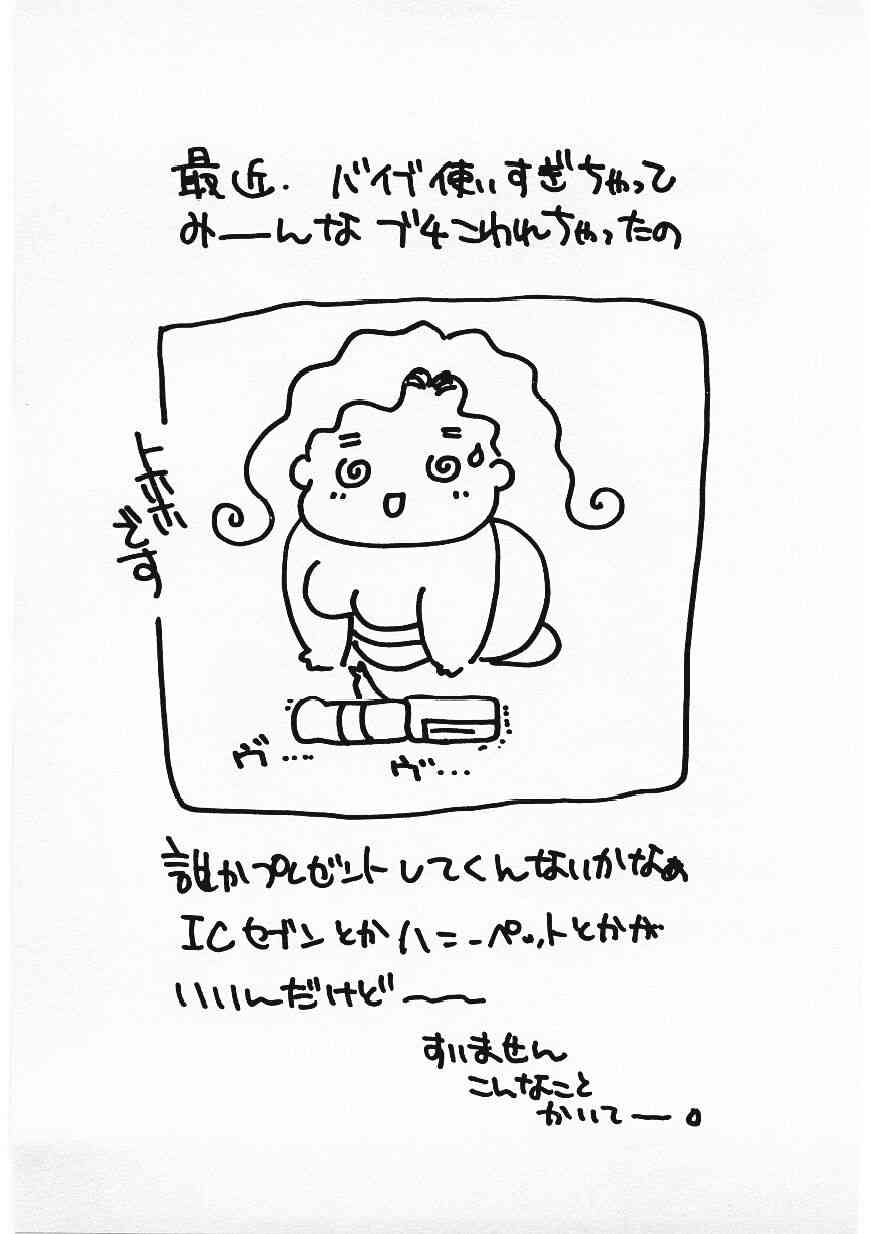 最近．バイブ使いすぎちゃって
みーーんなブチこわれちゃったの
トホホ
です
ヴ…
ヴ…
誰かプレゼントしてくんないかなぁ
ICセブンとかハニーペットとかが
いいんだけど〜〜
すいません
こんなこと
かいてー。